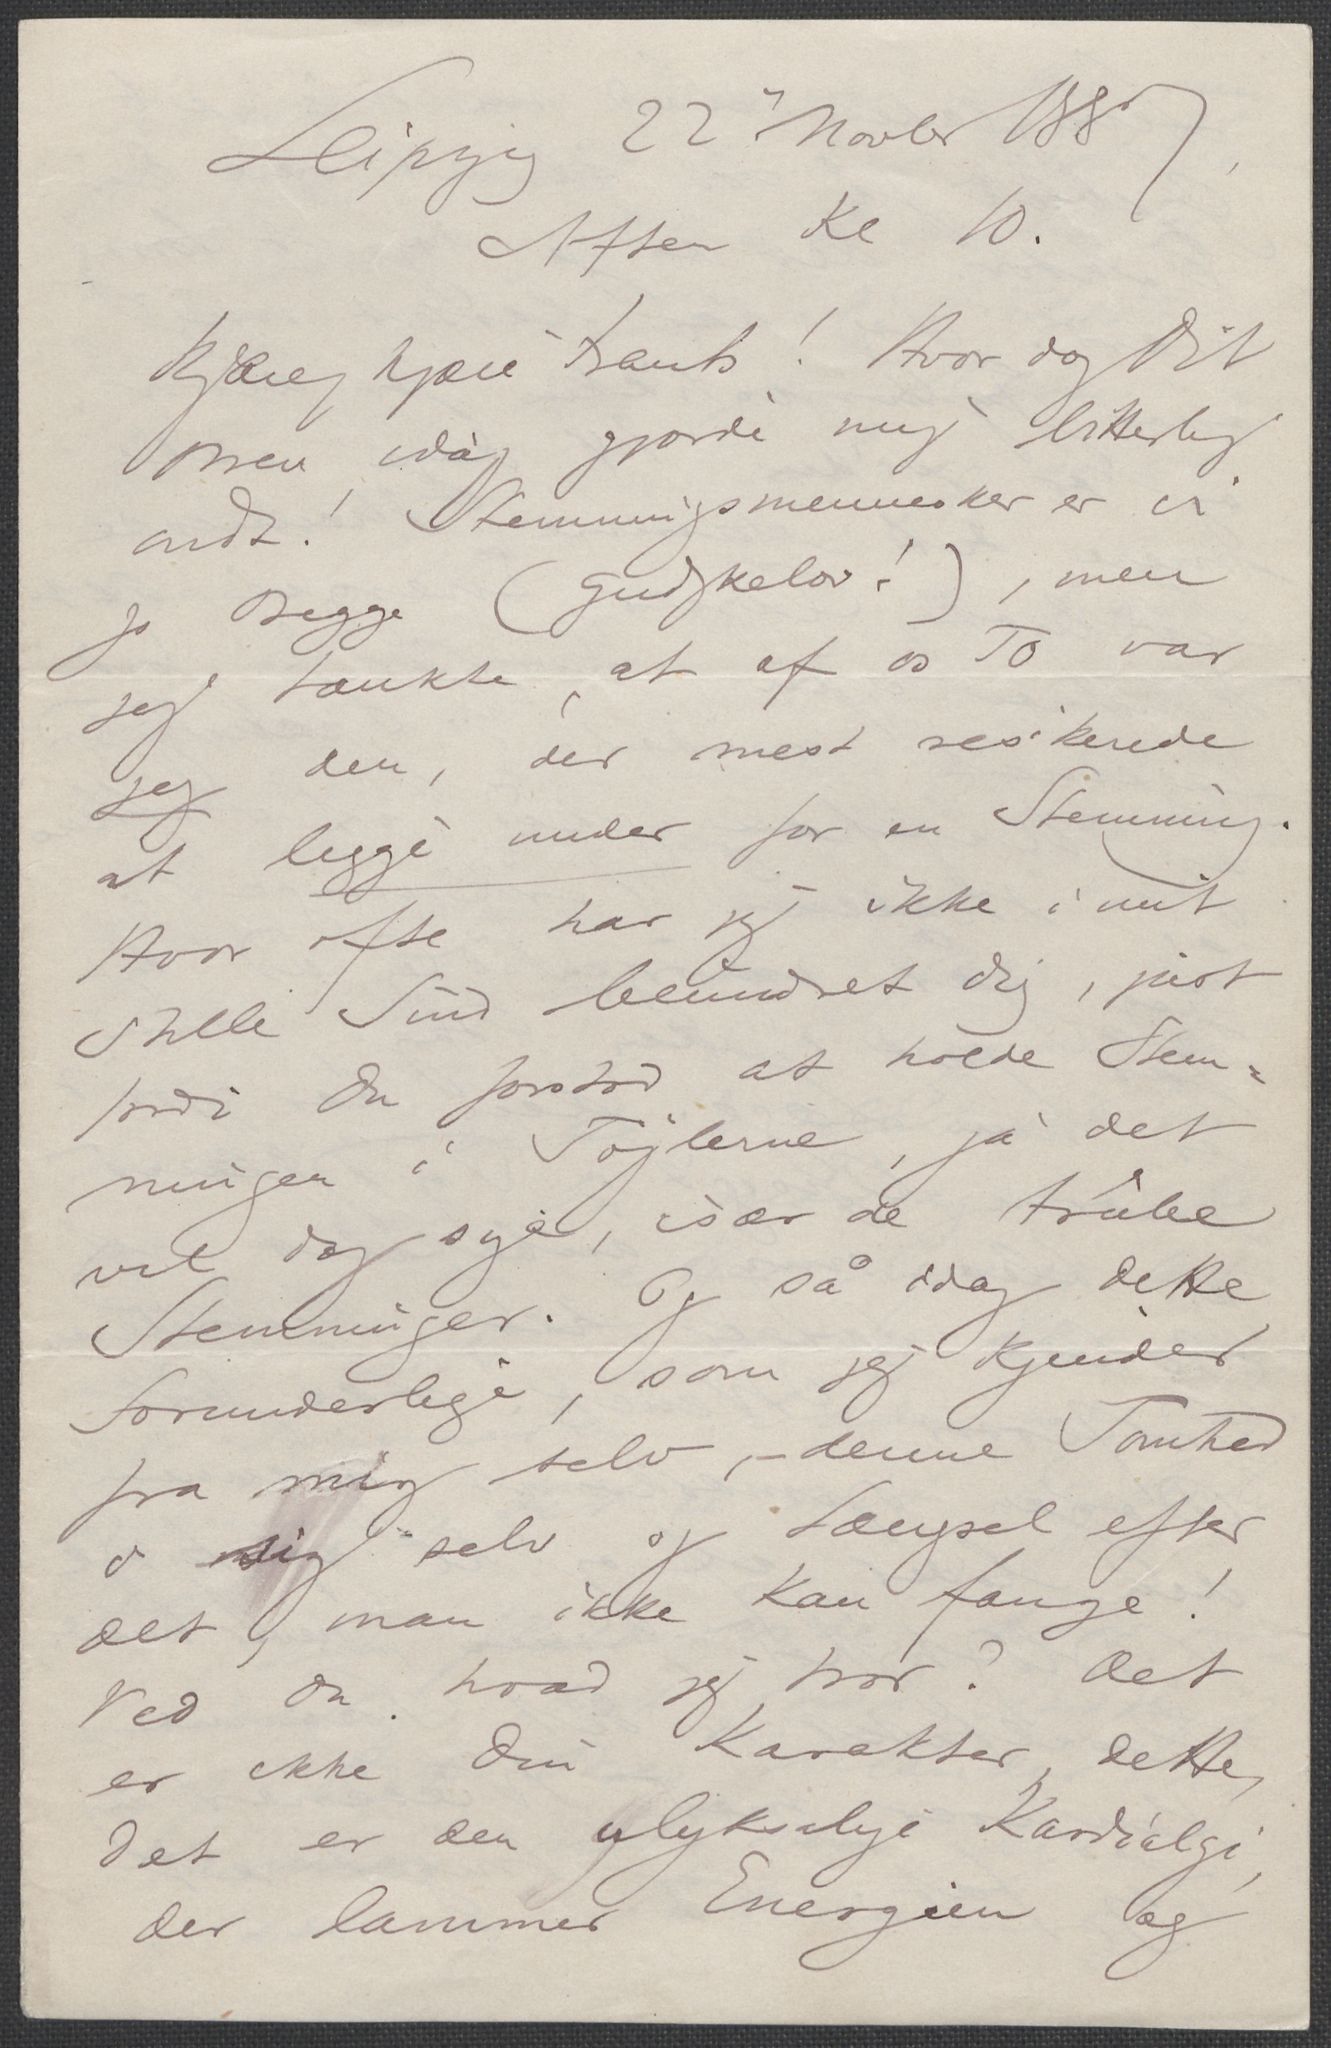 Leipzig 22 Novbr 1887,
Aften Kl 10.
Kjære, kjære Frants! Hvor dog Dit
Brev idag gjorde mig bitterlig
ondt! Stemningsmennesker er vi
jo Begge (Gudskelov!), men
jeg tænkte, at af os To var
jeg den, der mest resikerede
at ligge under for en Stemning.
Hvor ofte har jeg ikke i mit
stille Sind beundret Dig, just
fordi Du forstod at holde Stem-
ningen i Töjlerne, ja det
vil dog sige, især de triste
Stemninger. Og så idag dette
forunderlige, som jeg kjender
fra mig selv, – denne Tomhed
i sig selv og Længsel efter
det, man ikke kan fange!
Ved Du hvad jeg tror? Det
er ikke Din Karakter, dette,
Det er den ulyksalige Kardialgi,
der lammer Energien og